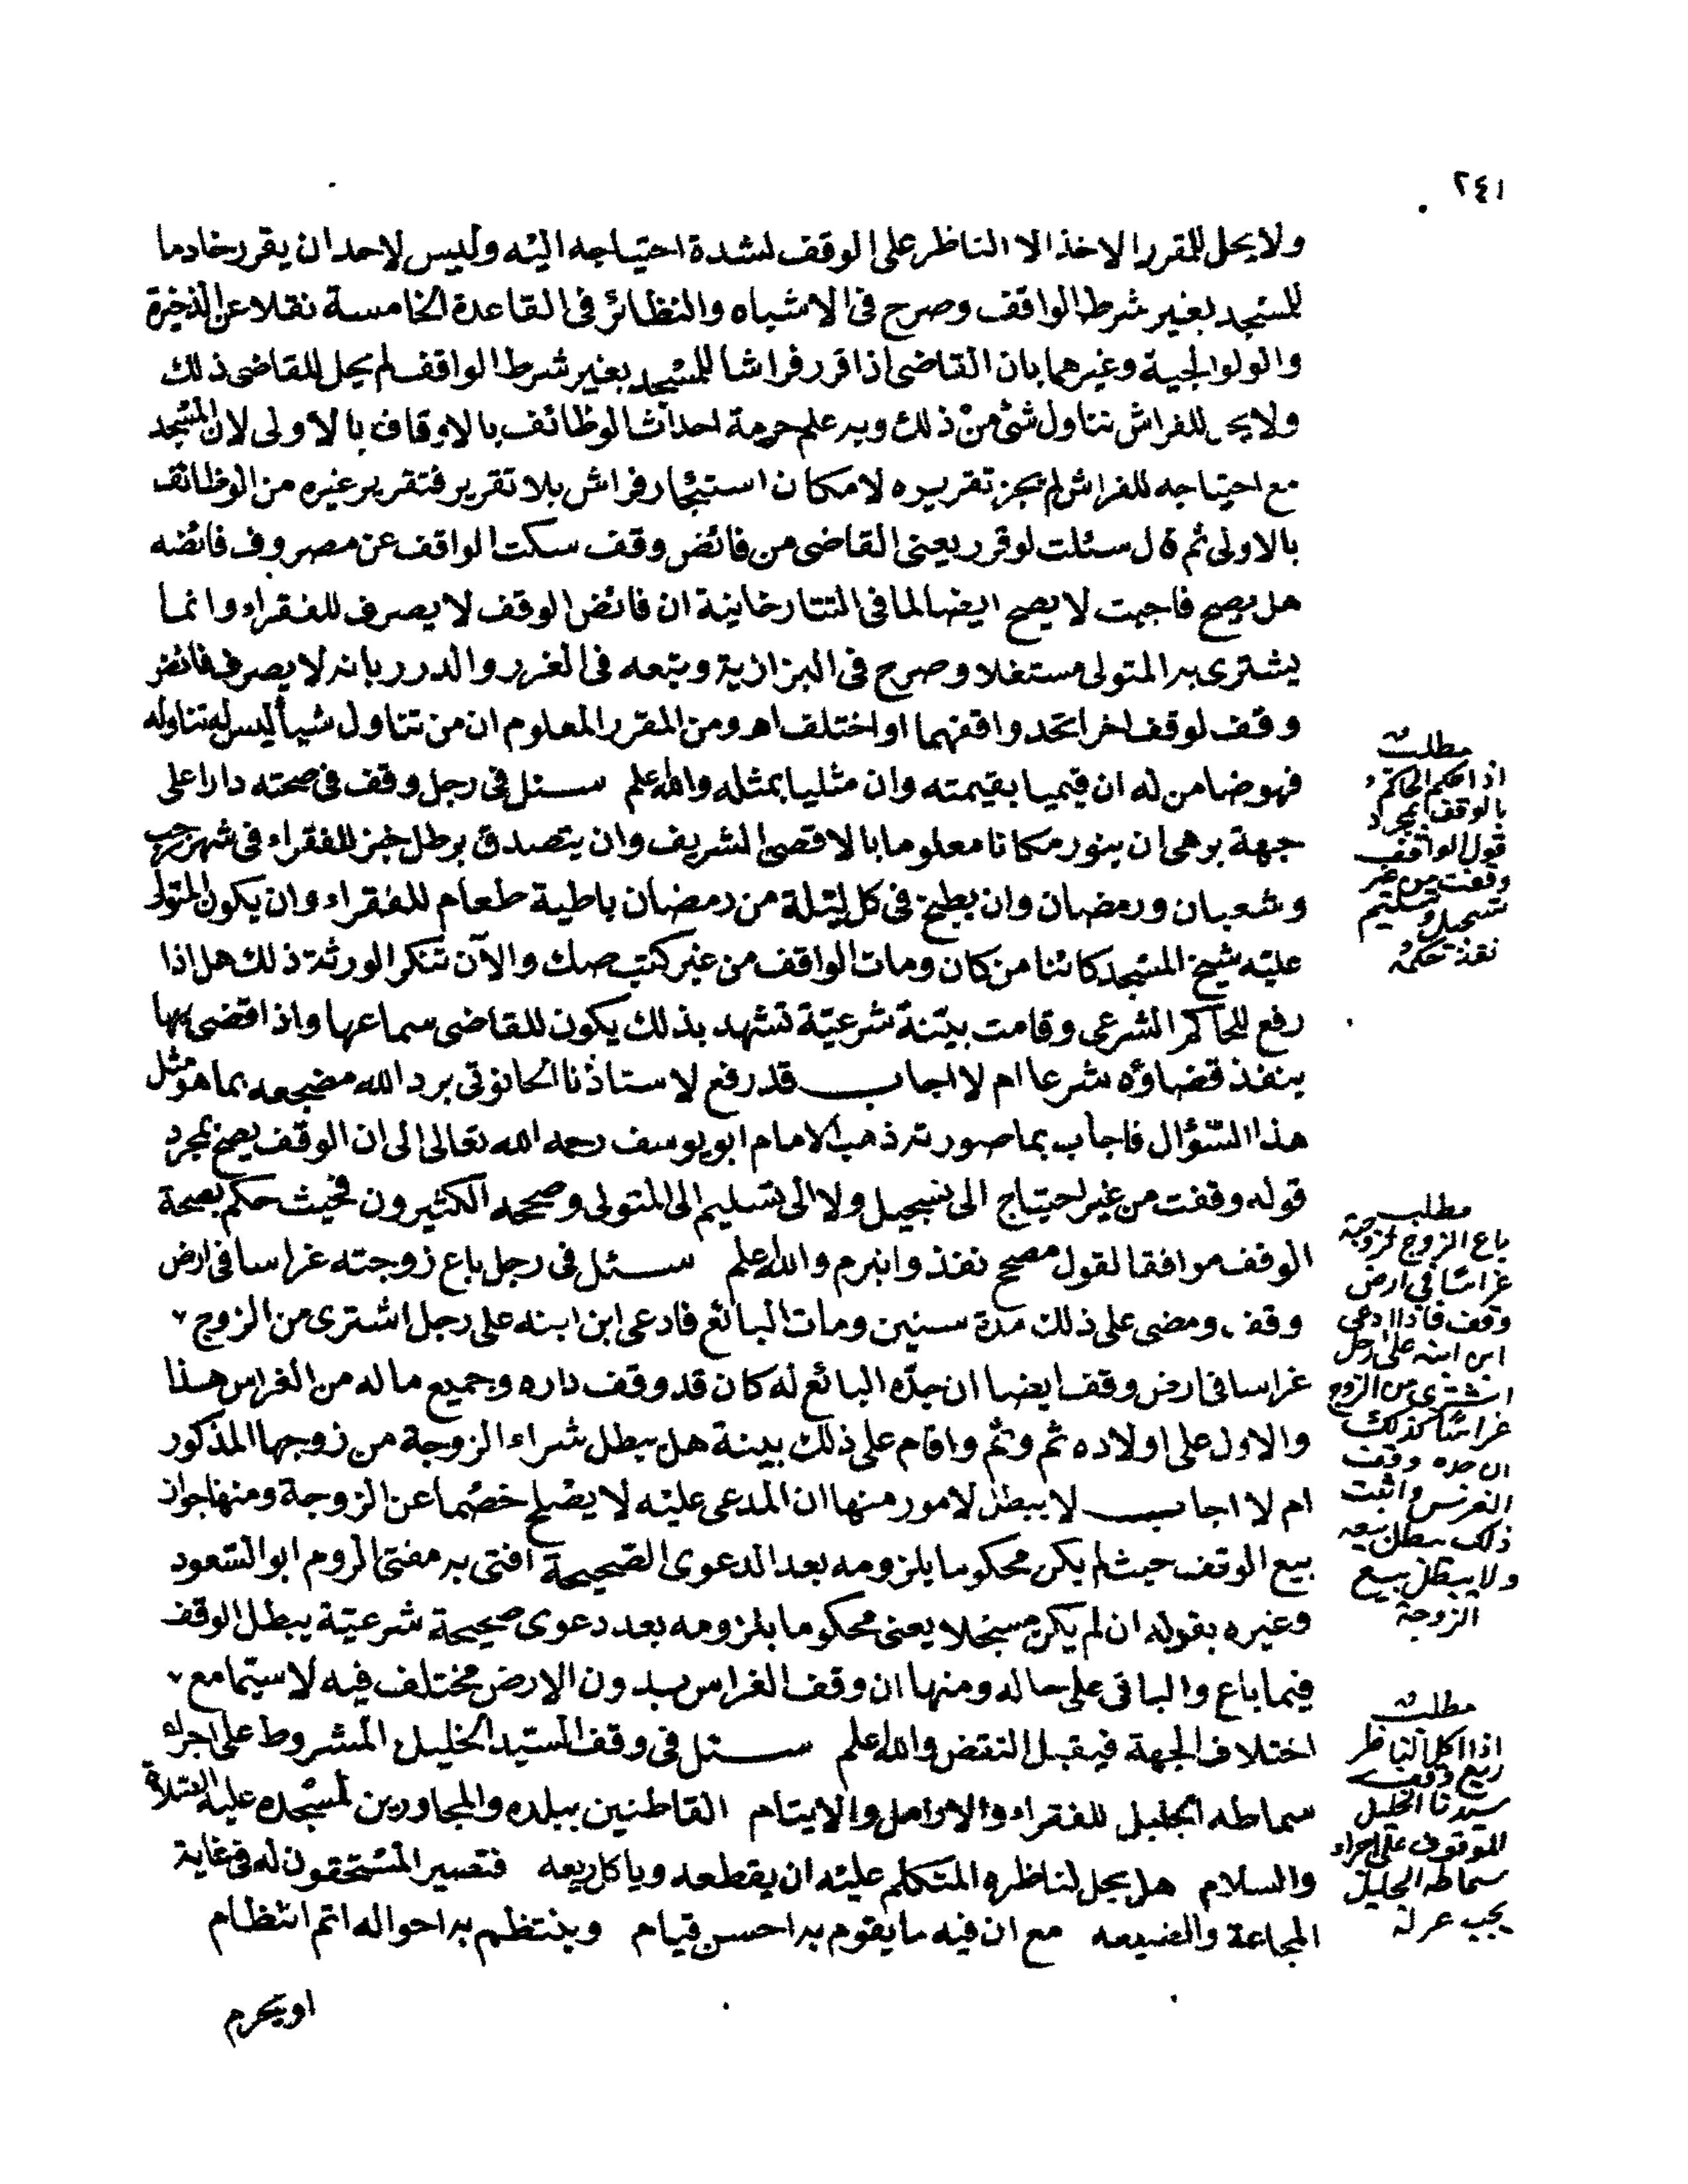 ٢٤١
ولا يحل للمقرر الاخذ الا الناظر على الوقف لشدة احتياجه اليه وليس لاحد ان يقرر خادما
للمسجد بغير شرط الواقف وصرح فى الاشباه والنظائر فى القاعدة الخامسة نقلا عن الذخيرة
والولوالجية وغيرهما بان القاضى اذا قرر فراشا للمسجد بغير شرط الواقف لم يحل للقاضى ذلك
ولا يحل للفراش تناول شئ من ذلك وبه علم حرمة احداث الوظائف بالاوقاف بالاولى لان المسجد
مع احتياجه للفراش لم يجز تقريره لامكان استيجار فراش بلا تقرير فتقرير غيره من الوظائف
بالاولى ثم قال سئلت لو قرر يعنى القاضى من فائض وقف سكت الواقف عن مصروف فائضه
هل يصح فاجبت لا يصح ايضا لما فى التتارخانية ان فائض الوقف لا يصرف للفقراء وانما
يشترى به المتولى مستغلا وصرح فى البزازية وتبعه فى الغرر والدرر بانه لا يصرف فائض
وقف لوقف اخر اتحد واقفهما او اختلف اهـ ومن المقرر المعلوم ان من تناول شيأ ليس له تناوله
فهو ضامن له ان قيميا بقيمته وان مثليا بمثله والله اعلم سئل فى رجل وقف فى صحته دارا على
جهة بر هى ان ينور مكانا معلوما بالاقصى الشريف وان يتصدق برطل خبز للفقراء فى شهر رجب
وشعبان ورمضان وان يطبخ فى كل ليلة من رمضان باطية طعام للفقراء وان يكون المتولى
عليه شيخ المسجد كائنا من كان ومات الواقف من غير كتب صك والآن تنكر الورثة ذلك هل اذا
رفع للحاكم الشرعى وقامت بينة شرعية تشهد بذلك يكون للقاضى سماعها واذا قضى بها
ينفذ قضاؤه شرعا ام لا اجاب قد رفع لاستاذنا الحانوتى برد الله مضجعه بما هو مثل
هذا السؤال فاجاب بما صورته ذهب الامام ابو يوسف رحمه الله تعالى الى ان الوقف يصح بمجرد
قوله وقفت من غير احتياج الى تسجيل ولا الى تسليم الى المتولى وصححه الكثيرون فحيث حكم بصحة
الوقف موافقا لقول مصحح نفذ وانبرم والله اعلم سئل فى رجل باع زوجته غراسا فى ارض
وقف ومضى على ذلك مدة سنين ومات البائع فادعى ابن ابنه على رجل اشترى من الزوج
غراسا فى ارض وقف ايضا ان جده البائع له كان قد وقف داره وجميع ماله من الغراس هذا
والاول على اولاده ثم وثم واقام على ذلك بينة هل يبطل شراء الزوجة من زوجها المذكور
ام لا اجاب لا يبطل لامور منها ان المدعى عليه لا يصلح خصما عن الزوجة ومنها جواز
بيع الوقف حيث لم يكن محكوما بلزومه بعد الدعوى الصحيحة افتى به مفتى الروم ابو السعود
وغيره بقوله ان لم يكن مسجلا يعنى محكوما بلزومه بعد دعوى صحيحة شرعية يبطل الوقف
فيما باع والباقى على حاله ومنها ان وقف الغراس بدون الارض مختلف فيه لا سيما مع
اختلاف الجهة فيقبل النقض والله اعلم سئل فى وقف السيد الخليل المشروط على اجراء
سماطه الجليل للفقراء والارامل والايتام القاطنين ببلده والمجاورين لمسجده عليه الصلاة
والسلام هل يحل لناظره المتكلم عليه ان يقطعه وياكل ريعه فتصير المستحقون له فى غاية
المجاعة والضيعه مع ان فيه ما يقوم به احسن قيام وينتظم به احواله اتم انتظام
او يحرم
مطلب
اذا حكم الحاكم
بالوقف بمجرد
قول الواقف
وقفت من غير
تسجيل وتسليم
نفذ حكمه
مطلب
باع الزوج لزوجته
غراسًا فى ارض
وقف فاذا ادعى
ابن ابنه على رجل
اشترى من الزوج
غراسًا كذلك
ان جده وقف
الغرس واثبت
ذلك يبطل بيعه
ولا يبطل بيع
الزوجة
مطلب
اذا اكل الناظر
ريع وقف
سيدنا الخليل
الموقوف على اجراء
سماطه الجليل
يجب عزله